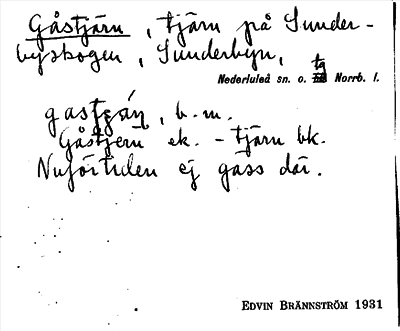 Gåstjärn, tjärn på Sunder-
byskogen, Sunderbyn,
Nederluleå sn. o. tg Norrb. l.
b. m.
Gåstjern ek. - tjärn bk.
Nuförtiden ej gäss där.
EDVIN BRÄNNSTRÖM 1931